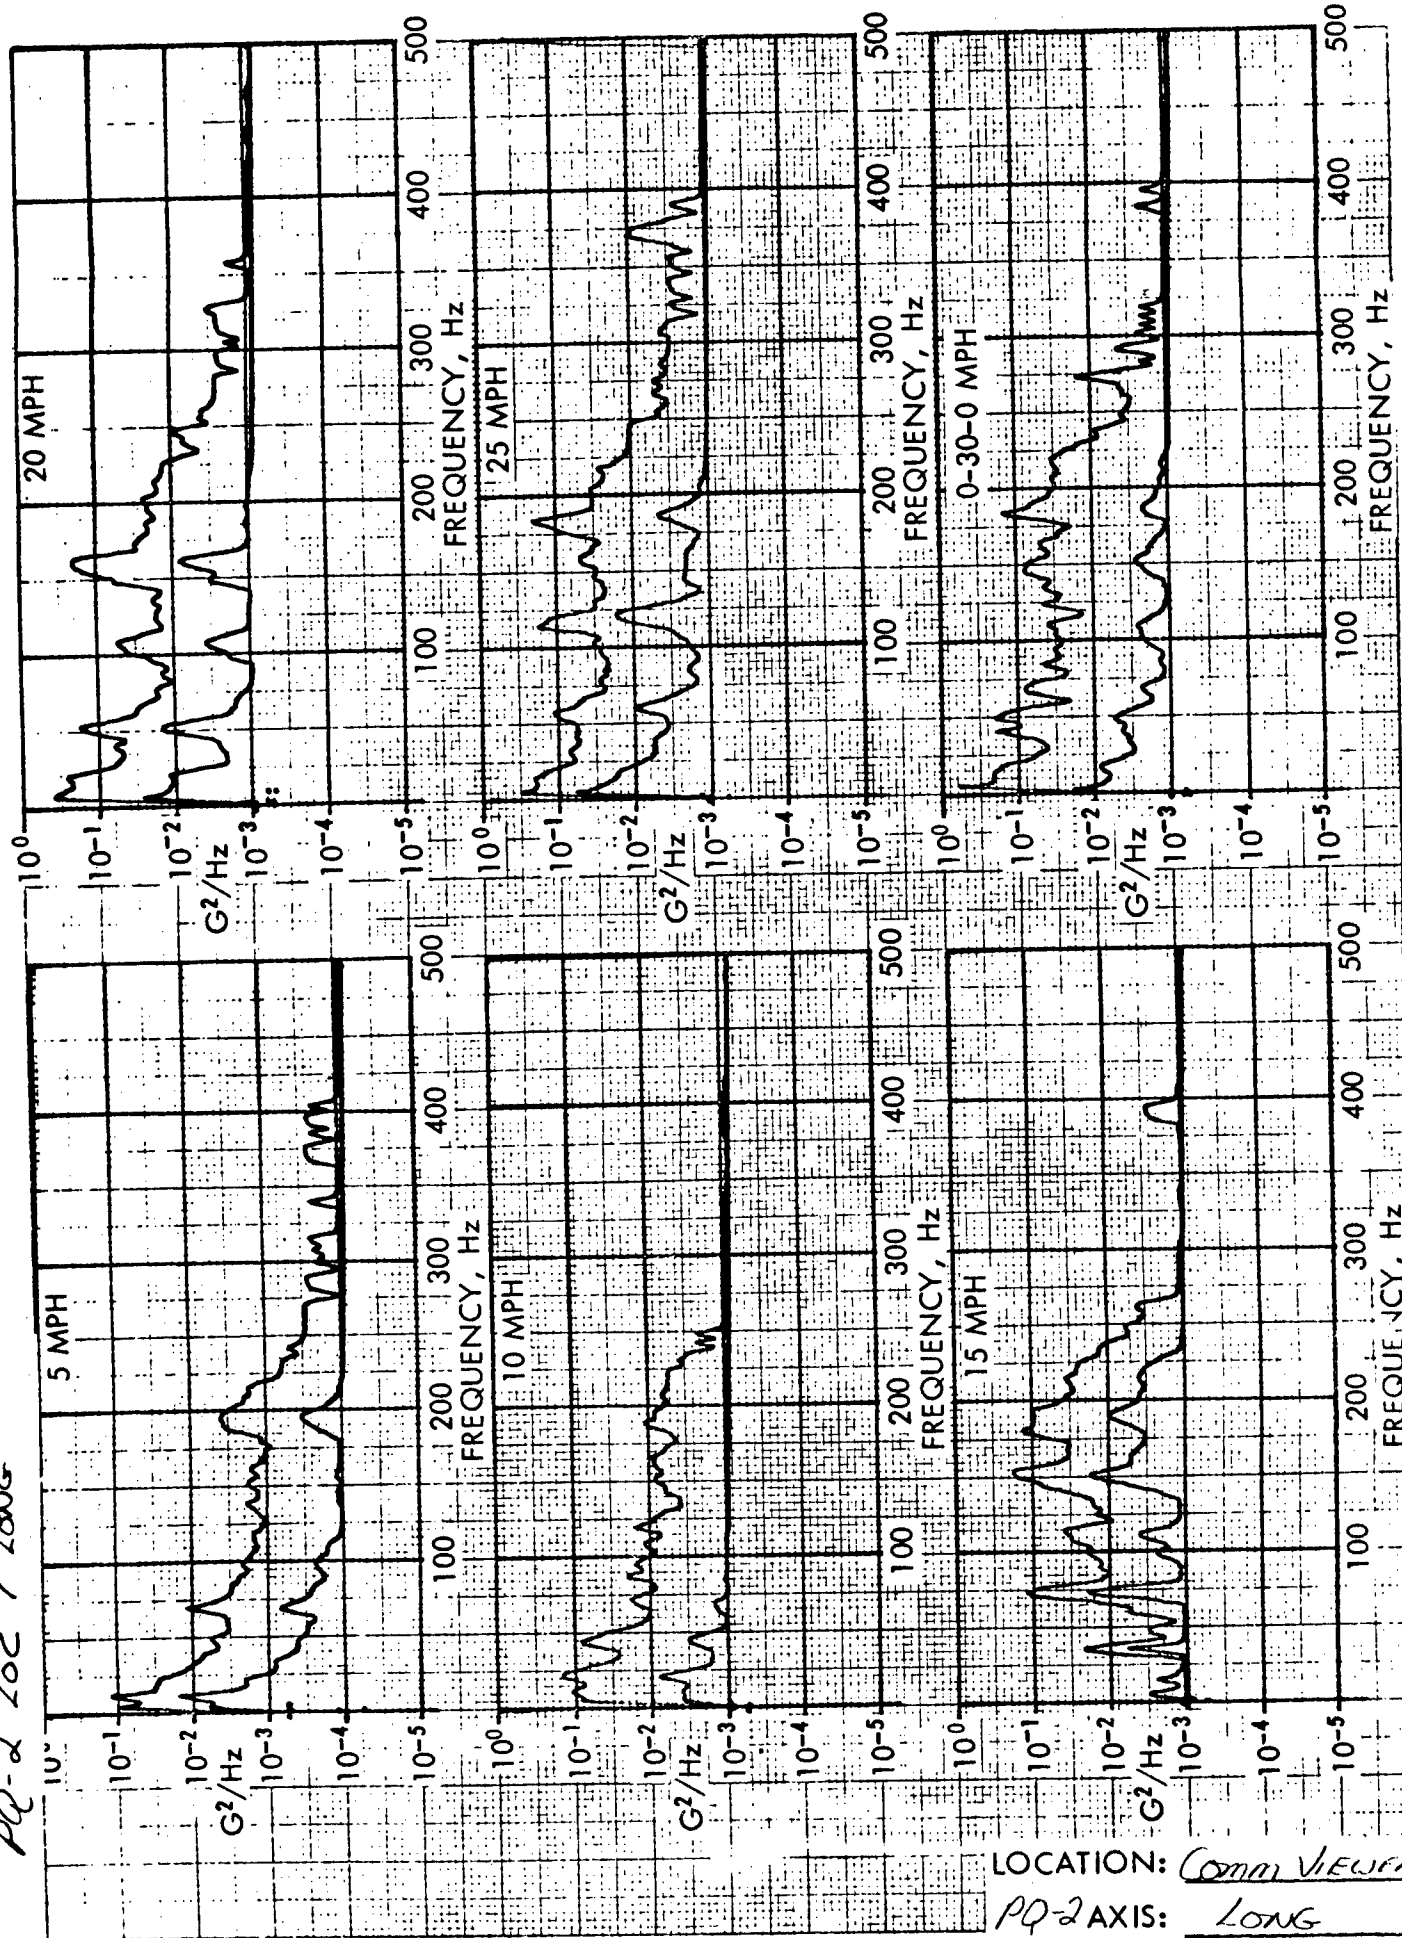 PQ-2 LOC 7 LONG
5 MPH
10⁻¹
10⁻²
G²/Hz
10⁻³
10⁻⁴
10⁻⁵
100
200
300
400
500
FREQUENCY, Hz
20 MPH
10⁰
10⁻¹
10⁻²
G²/Hz
10⁻³
10⁻⁴
10⁻⁵
100
200
300
400
500
FREQUENCY, Hz
10 MPH
10⁰
10⁻¹
10⁻²
G²/Hz
10⁻³
10⁻⁴
10⁻⁵
100
200
300
400
500
FREQUENCY, Hz
25 MPH
10⁰
10⁻¹
10⁻²
G²/Hz
10⁻³
10⁻⁴
10⁻⁵
100
200
300
400
500
FREQUENCY, Hz
15 MPH
10⁰
10⁻¹
10⁻²
G²/Hz
10⁻³
10⁻⁴
10⁻⁵
100
200
300
400
500
FREQUENCY, Hz
0-30-0 MPH
10⁰
10⁻¹
10⁻²
G²/Hz
10⁻³
10⁻⁴
10⁻⁵
100
200
300
400
500
FREQUENCY, Hz
LOCATION: Comm
PQ-2 AXIS: LONG